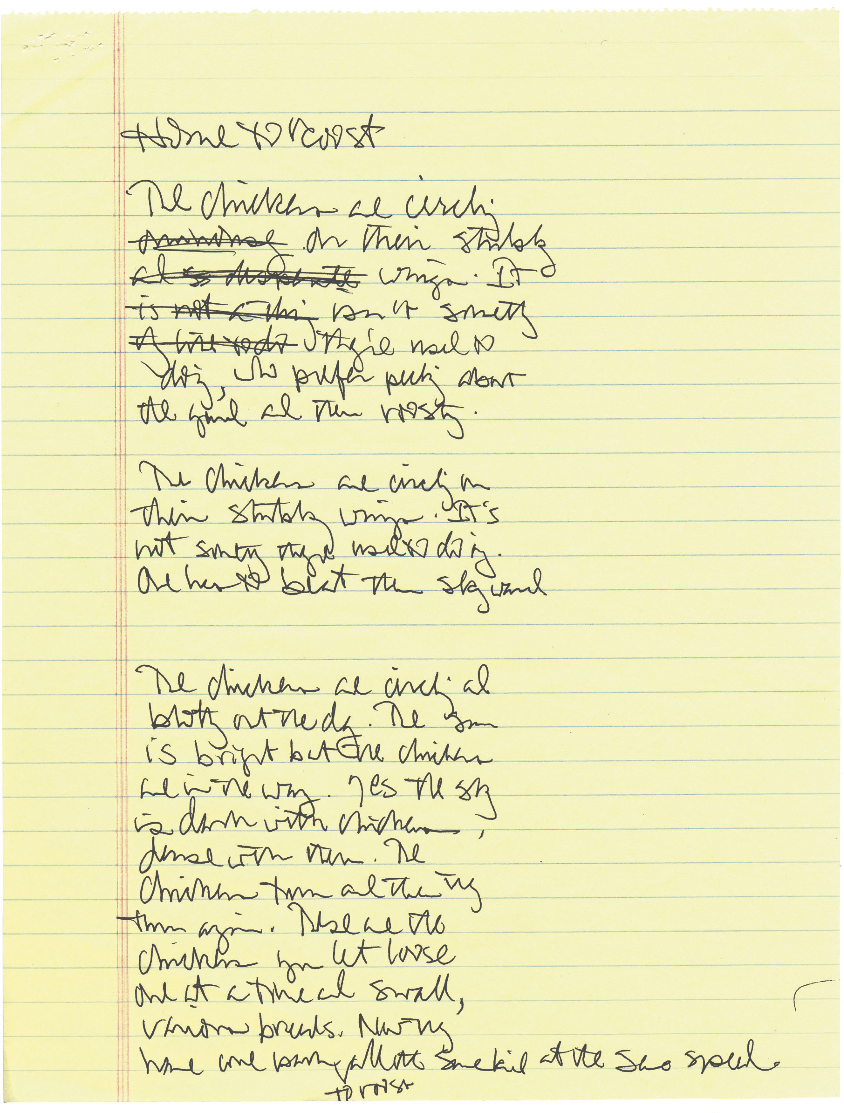 Home to roost
The chickens are circling
ominously on their stubby
and so desperate wings. It
is not a thing isn't something
of line to do they're used to
doing, who prefer pecking about
the yard and then roosting.
The chickens are circling on
their stubby wings. It's
not something they're used to doing.
One has to beat them skyward
The chickens are circling and
blotting out the day. The sun
is bright but the chickens
are in the way. Yes the sky
is dark with chickens,
dense with them. The
chickens turn and then they
turn again. These are the
chickens you let loose
one at a time and small,
various breeds. Now they
have come home all the same kind at the same speed.
to roost